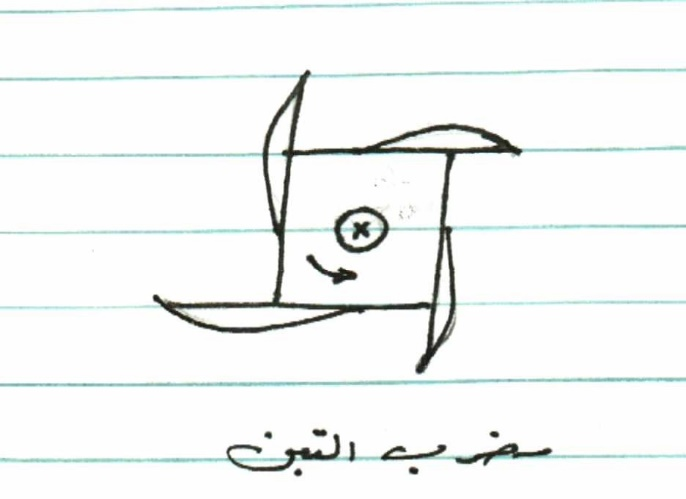 x
مضرب التبن